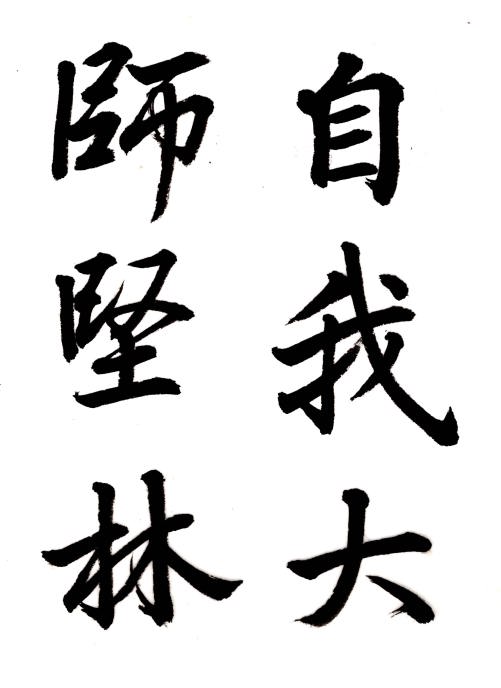 自我大
師堅林